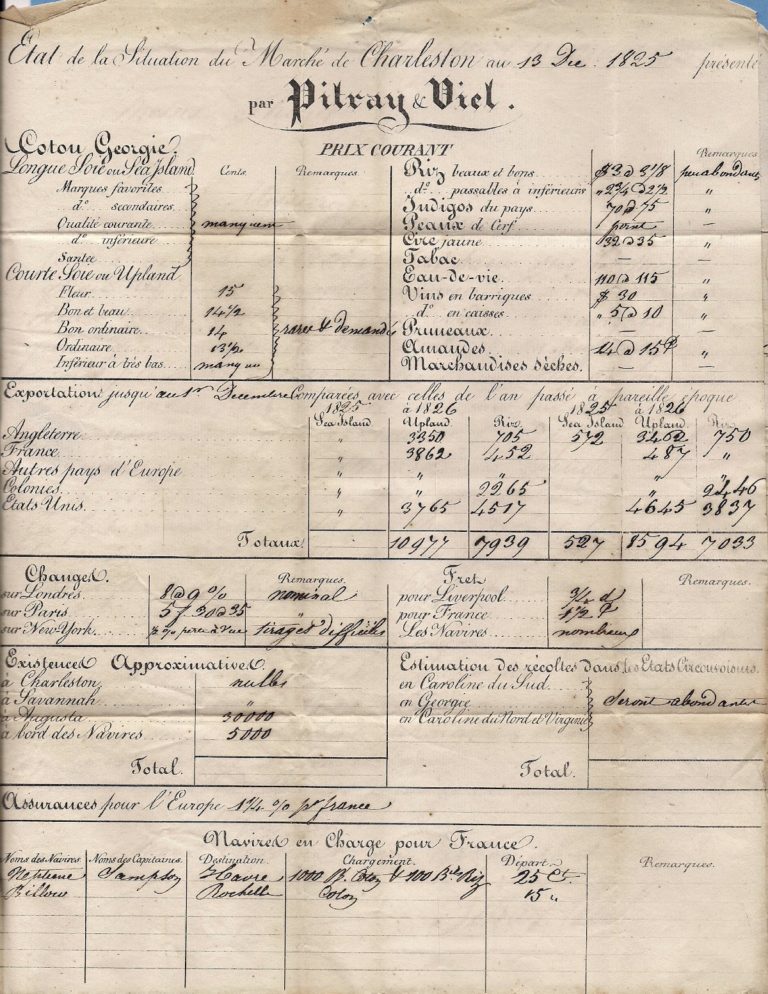 Etat de la Situation du Marché de Charleston au 13 Dec. 1825 présenté
par Pitray & Viel.
PRIX COURANT
Coton Georgie.
Longue Soie ou Sea Island Cents Remarques
Marques favorites
d.° secondaires
Qualité courante manquent
d.° inférieure
Santee
Courte Soie ou Upland
Fleur 15
Bon et beau 14 1/2
Bon ordinaire 14 rares & demandé
Ordinaire 13 1/2
Inférieur à très bas manquent
Remarques
Riz beaux et bons $3 @ 3 1/8 peu abondant
d.° passables à inférieurs " 2 3/4 @ 2 1/2 "
Indigos du pays 70 @ 75 "
Peaux de Cerf point —
Cire jaune 32 @ 35 "
Tabac — —
Eau-de-vie 110 @ 115 "
Vins en barriques $ 30 "
d.° en caisses " 5 @ 10 "
Pruneaux — —
Amandes 14 @ 15 "
Marchandises sèches. — —
Exportation jusqu'au 1er Decembre Comparées avec celles de l'an passé à pareille époque
1825 à 1826 1825 à 1826
Sea Island Upland Riz Sea Island Upland Riz
Angleterre " 3350 705 572 3462 750
France " 3862 452 487 "
Autres pays d'Europe " "
Colonies " 2265 " 2446
Etats Unis " 3765 4517 4645 3837
Totaux 10977 7939 527 8594 7033
Changes. Remarques.
sur Londres 8 @ 9 % nominal
sur Paris 5 f 30 @ 35 "
sur New York à vue tirages difficiles
Fret Remarques.
pour Liverpool 3/4 d
pour France 1 1/2
Les Navires nombreux
Existences Approximatives.
à Charleston nulles
à Savannah "
à Augusta 30000
à bord des Navires 5000
Total.
Estimation des récoltes dans les Etats Circonvoisins
en Caroline du Sud
en Georgie Seront abondantes
en Caroline du Nord et Virginie
Total.
Assurances pour l'Europe 1 1/4 % pr france
Navires en Charge pour France.
Noms des Navires Noms des Capitaines. Destination. Chargement. Départ. Remarques.
Neptune Sampson Havre 1000 B. Coton & 100 Bls Riz 25 Ct.
Billow Rochelle Coton 15 "